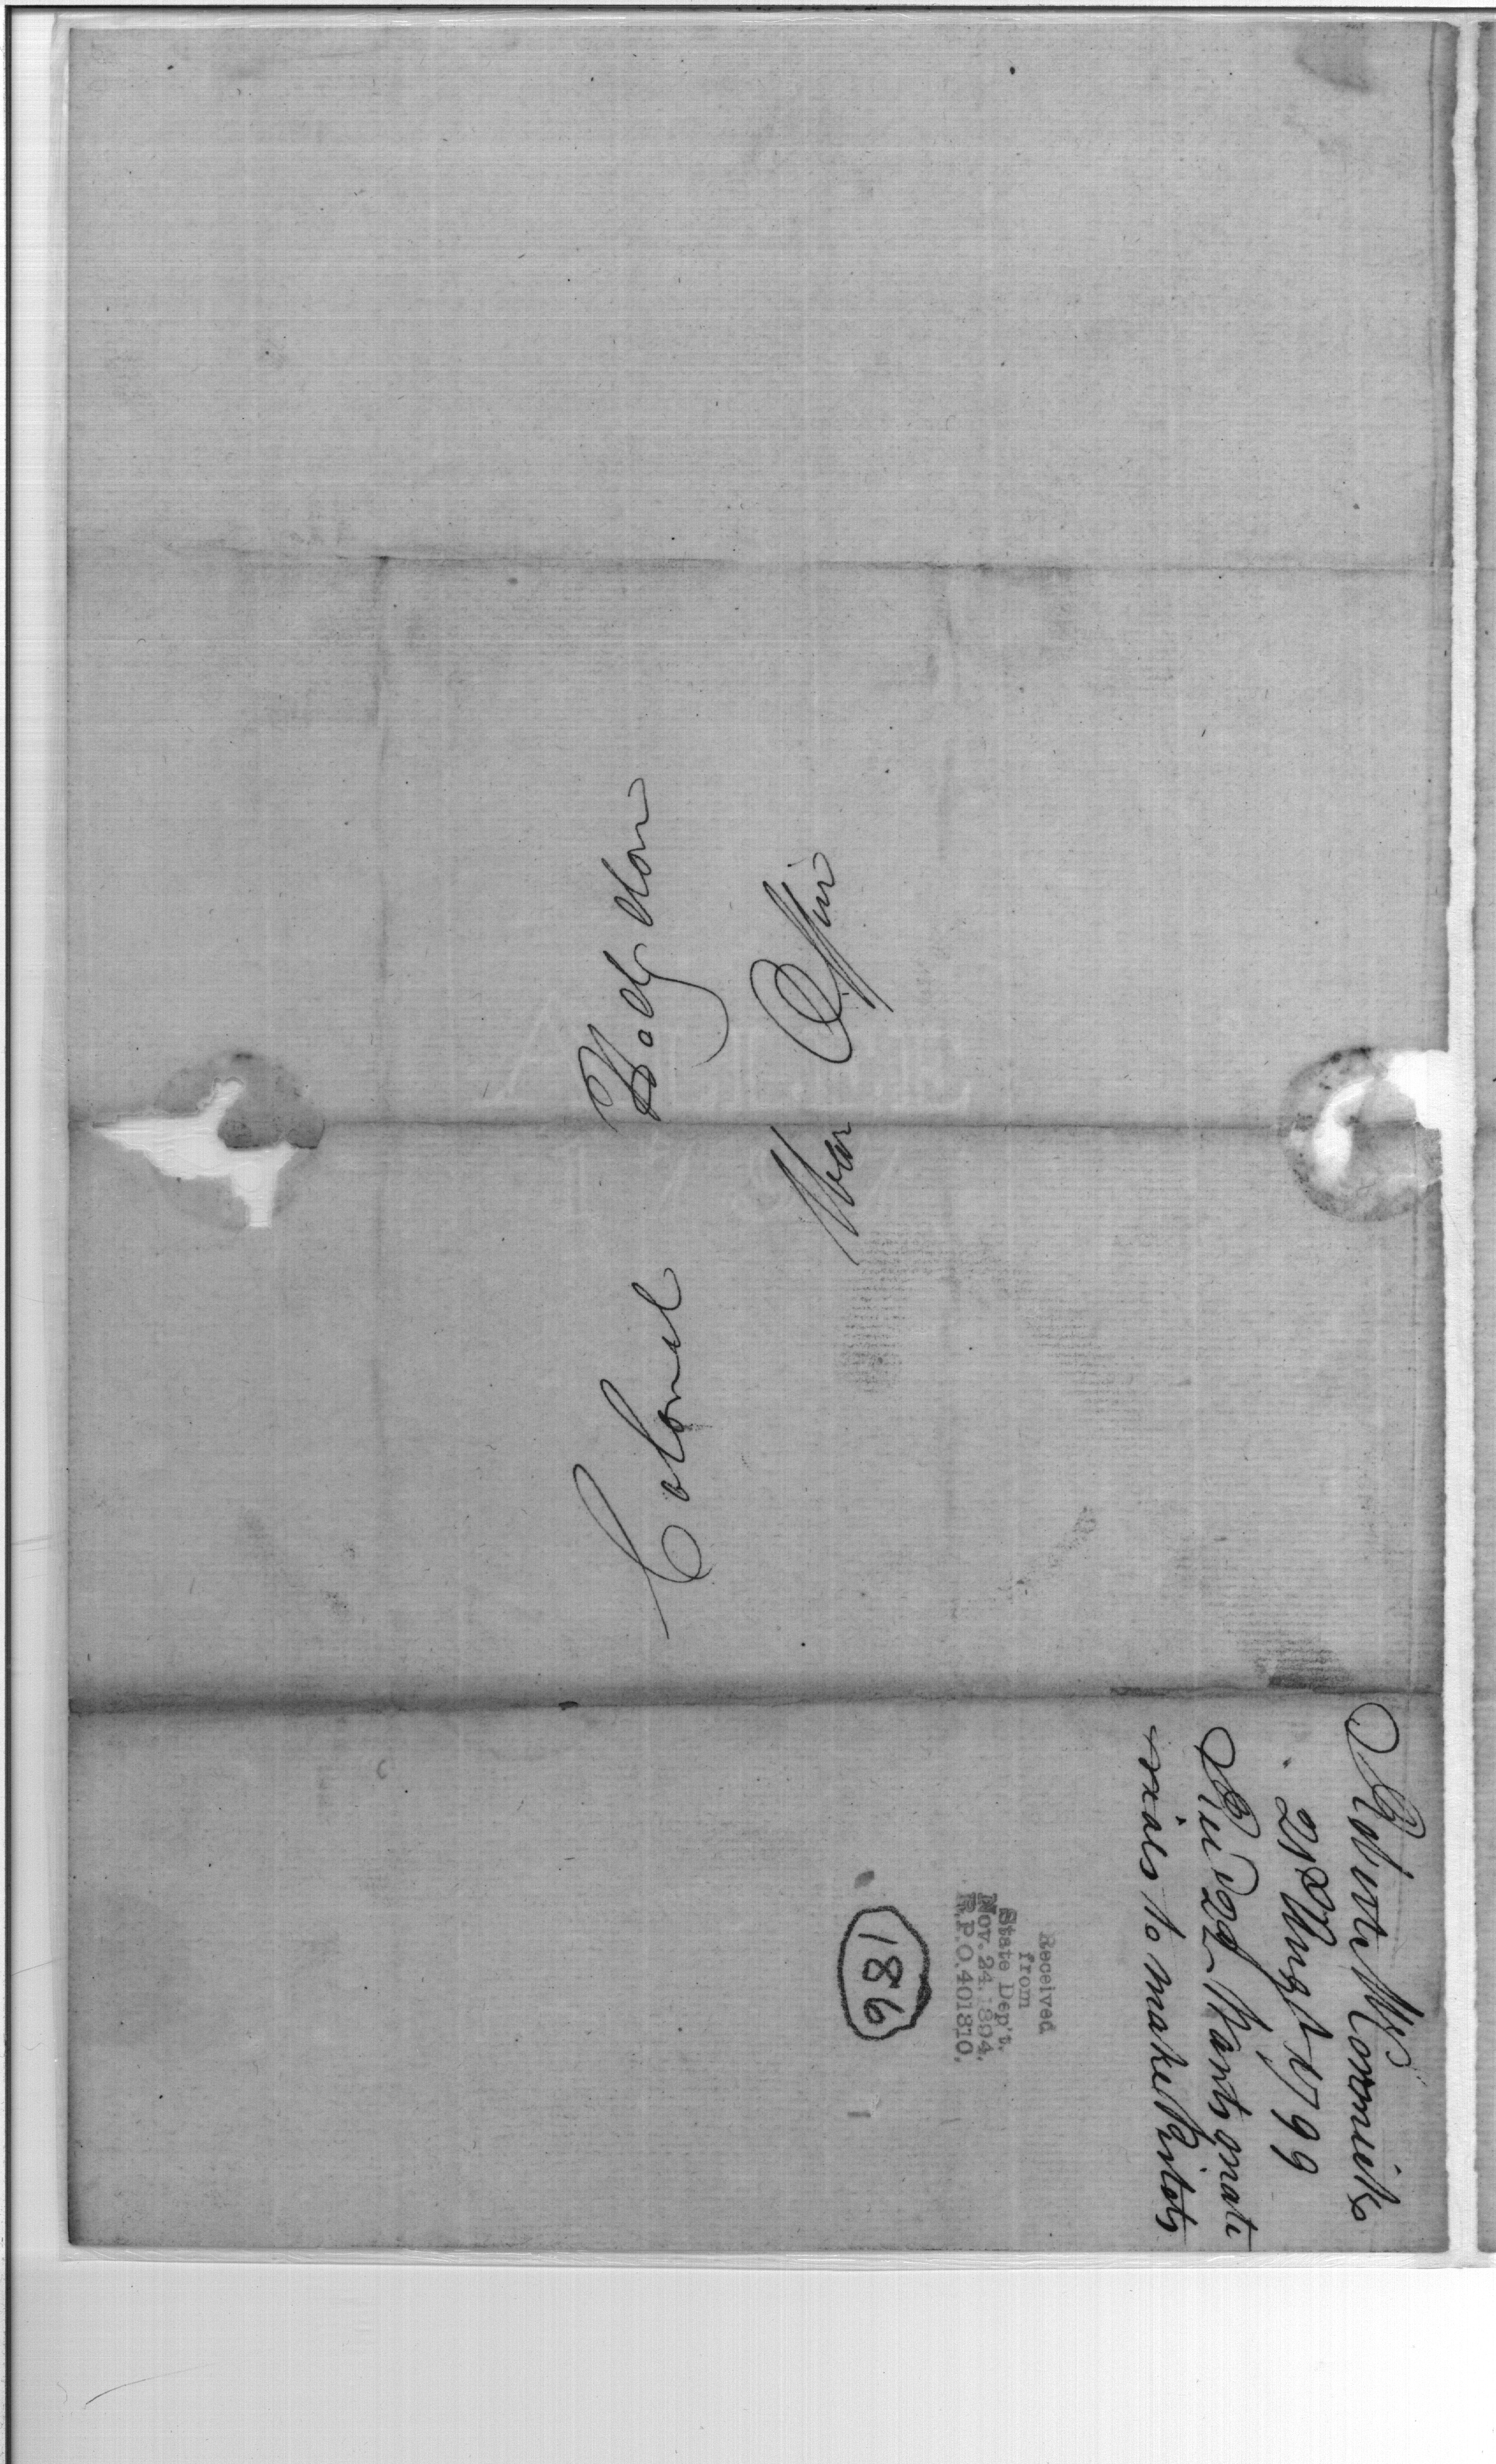 Colonel Hodgdon
War Office
Robert McCormick
21st Augst 1799
Rec'd 22d Wants mate
rials to make Pilots
Received
from
State Dep't.
Nov. 24. 1894.
R.P.O. 401810.
186
1797